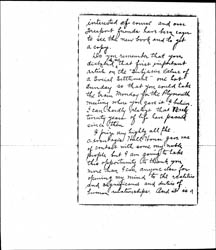 interested of comes and our
freeport friends have been eager
to see the new book and to get
a copy.
Do you remember that you
dictated that first important
article on the "Subjective Value of
a Social Settlement" one hot
Sunday so that you could take
the train Monday for the Plymouth
meeting where you gave it I believe.
I can hardly realize that
twenty years of life have passed
since then
I prize very highly all the
advantages Hull House gave me
of contact with some my noble
people but I am going to take
this opportunity to thank you
more than I can anyone else for
opening my mind to the realities
and significance and duties of
human relationships. And it is a